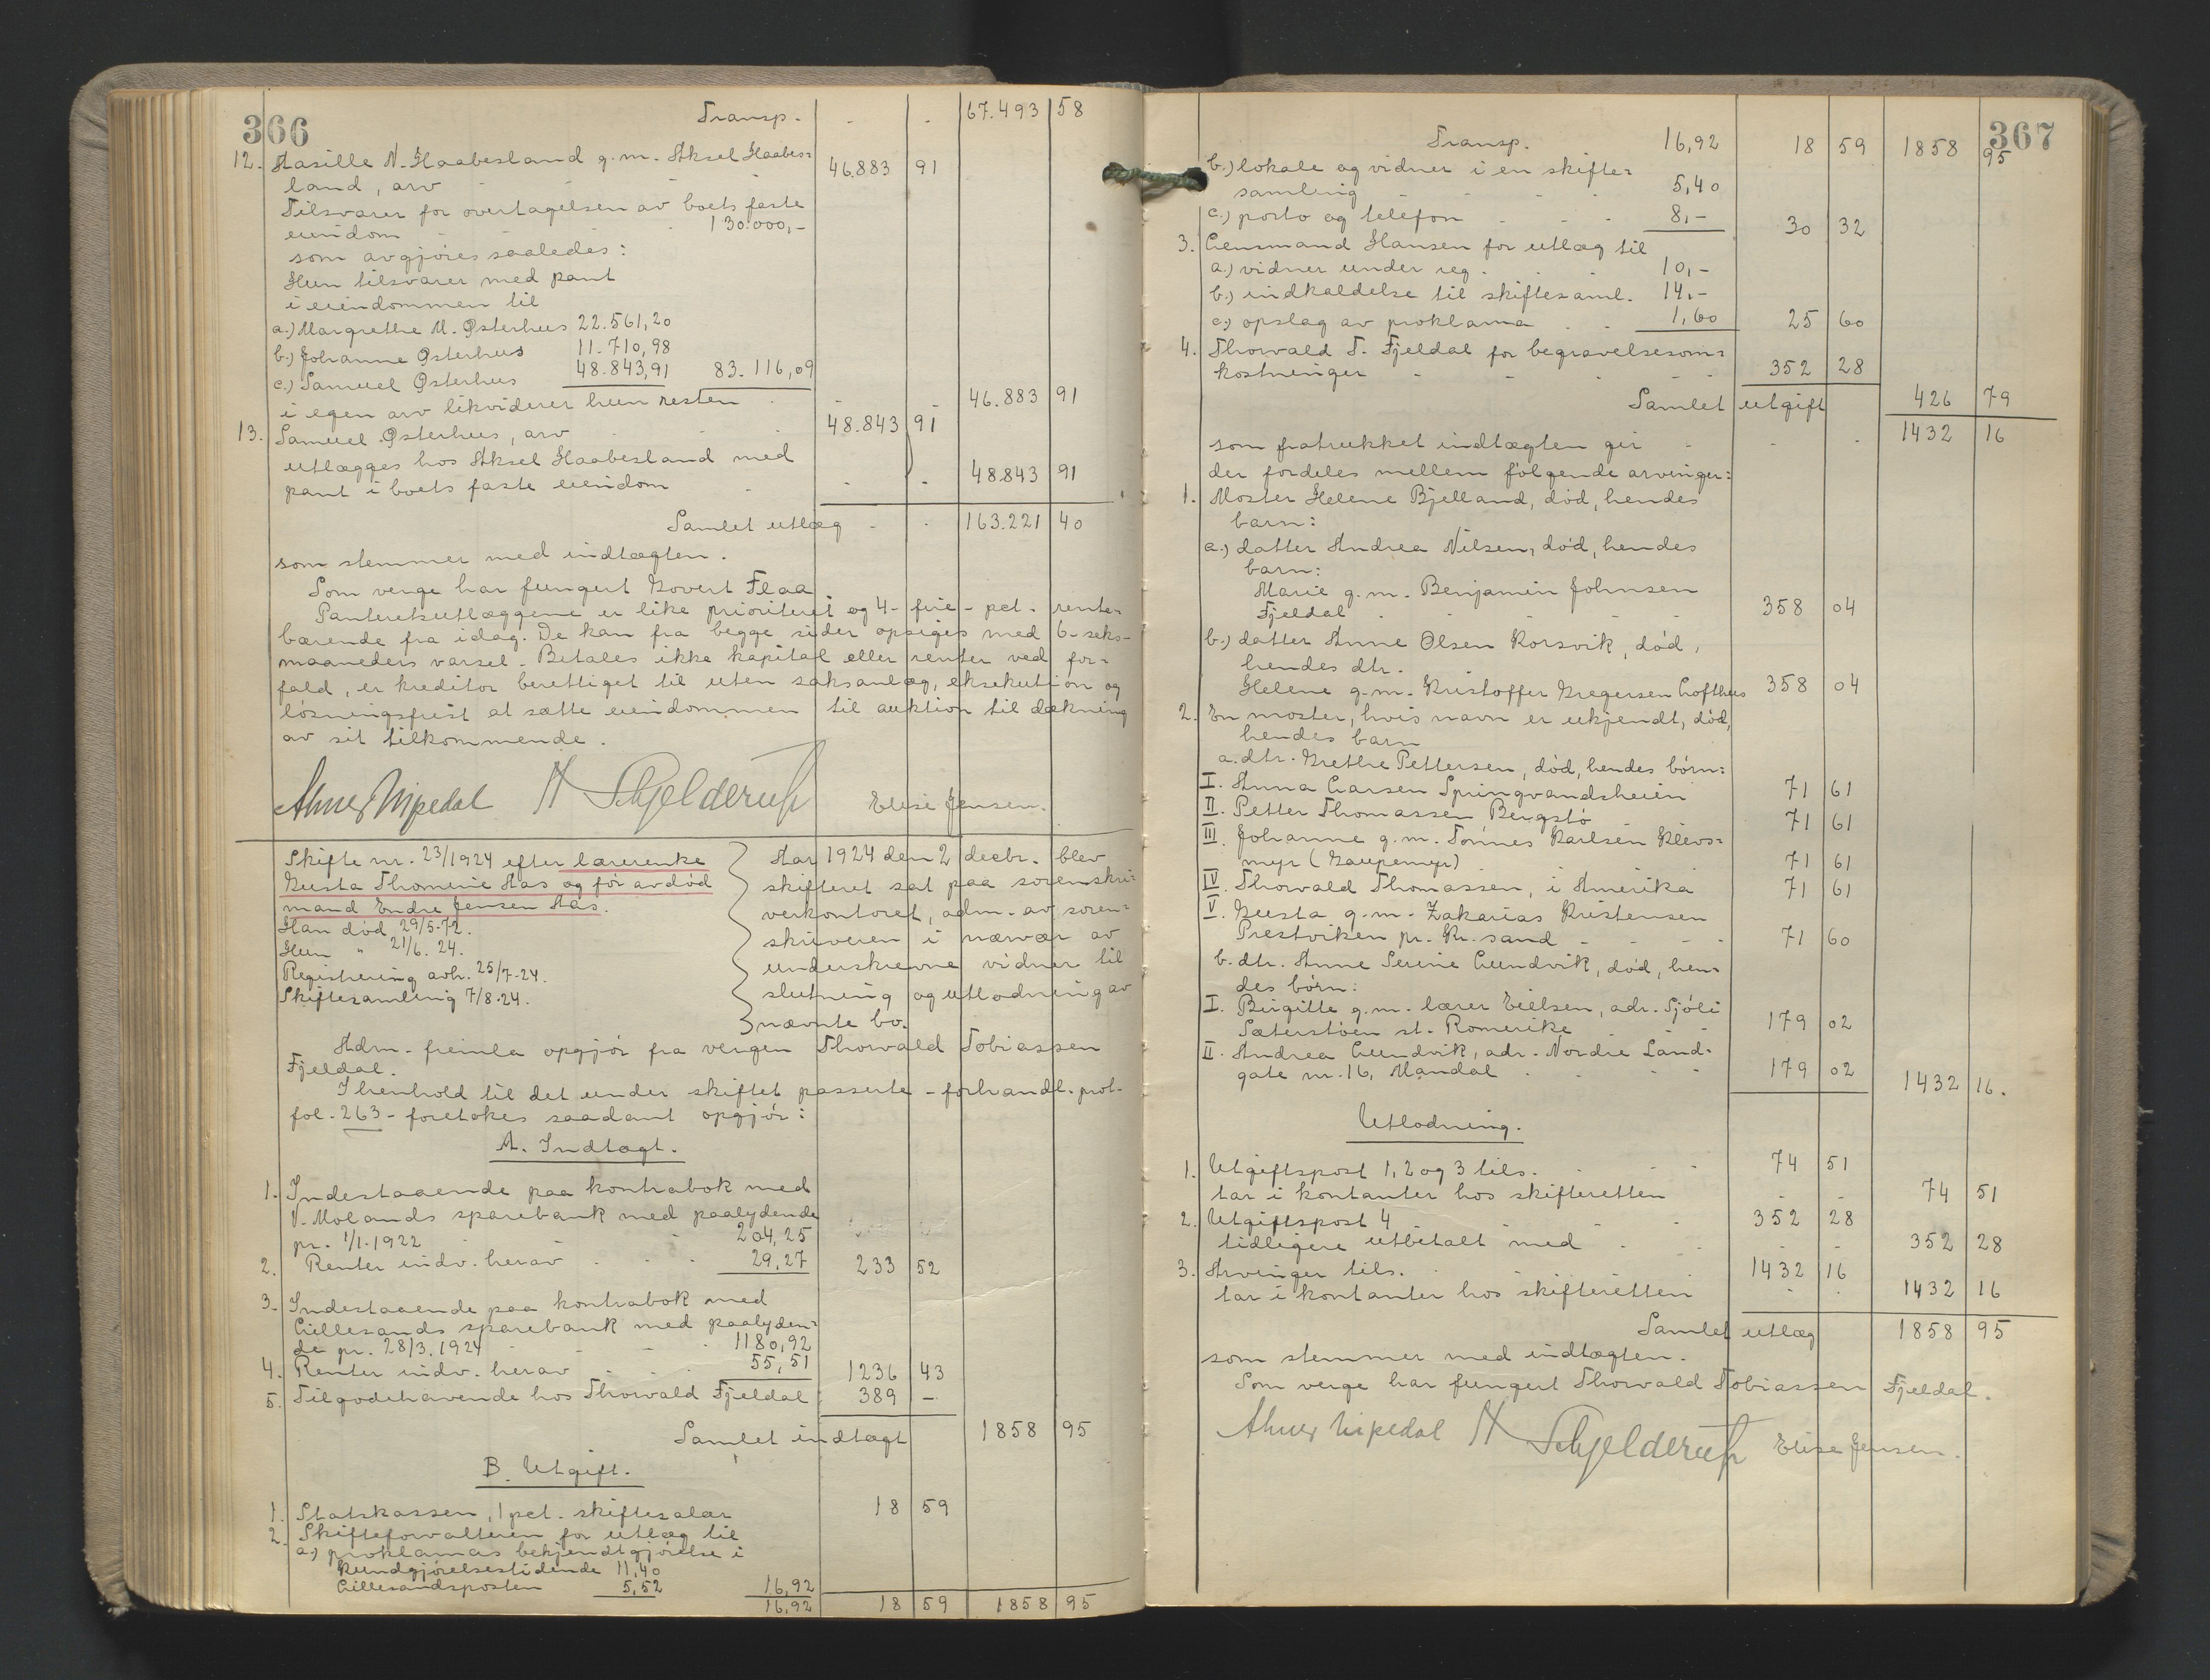 366
Transp. - - 67.493 58
12. Aasille N. Haabesland g.m. Aksel Haabes=
land, arv - - - 46.883 91
Tilsvarer for overtagelsen av boets faste
eiendom - - 130.000,-
som avgjøres saaledes:
Hun tilsvarer med pant
i eiendommen til
a.) Margrethe M. Østerhus 22.561,20
b.) Johanne Østerhus 11.710,98
c.) Samuel Østerhus 48.843,91 83.116,09
i egen arv likviderer hun resten - - - 46.883 91
13. Samuel Østerhus, arv - - 48.843 91
utlægges hos Aksel Haabesland med
pant i boets faste eiendom - - - 48.843 91
Samlet utlæg - - 163.221 40
som stemmer med indtægten.
Som verge har fungert Govert Flaa.
Panteretsutlæggene er like prioritert og 4-fire-pct. rente-
bærende fra idag. De kan fra begge sider opsiges med 6-seks-
maaneders varsel. Betales ikke kapital eller renter ved for=
fald, er kreditor berettiget til uten saksanlæg, eksekution og
løsningsfrist at sætte eiendommen til auktion til dækning
av sit tilkommende.
N Schjelderup Elise Jensen.
Skifte nr. 23/1924 efter lærerenke
Gusta Thomine Aas og før avdød
mand Endre Jensen Aas.
Han død 29/5-72.
Hun " 21/6. 24.
Registrering avh. 25/7-24.
Skiftesamling 7/8-24.
Aar 1924 den 2 decbr. blev
skifteret sat paa sorenskri=
verkontoret, adm. av soren=
skriveren i nærvær av
underskrevne vidner til
slutning og utlodning av
nævnte bo.
Adm. fremla opgjør fra vergen Thorvald Tobiassen
Fjeldal.
I henhold til det under skiftet passerte - forhandl. prot.
fol. 263 - foretokes saadant opgjør:
A. Indtægt.
1. Indestaaende paa kontrabok med
V. Molands sparebank med paalydende
pr. 1/1.1922 - - 204,25
2. Renter indv. herav - - - 29,27 233 52
3. Indestaaende paa kontrabok med
Lillesands sparebank med paalyden=
de pr. 28/3.1924 - - - 1180,92
4. Renter indv. herav - - - 55,51 1236 43
5. Tilgodehavende hos Thorvald Fjeldal 389 -
Samlet indtægt 1858 95
B. Utgift.
1. Statskassen, 1 pct. skiftesalær 18 59
2. Skifteforvalteren for utlæg til
a.) proklamas bekjendtgjørelse i
Kundgjørelsestidende 11,40
Lillesandsposten 5,52 16,92
16,92 18 59 1858 95
367
Transp. 16,92 18 59 1858 95
b.) lokale og vidner i en skifte=
samling - - - 5,40
c.) porto og telefon - - - 8,- 30 32
3. Lensmand Hansen for utlæg til
a.) vidner under reg. - - 10,-
b.) indkaldelse til skiftesaml. 14,-
c.) opslag av proklama - - 1,60 25 60
4. Thorvald T. Fjeldal for begravelsesom=
kostninger - - - - 352 28
Samlet utgift 426 79
som fratrukket indtægten gir - - - 1432 16
der fordeles mellem følgende arvinger:
1. Moster Helene Bjelland, død, hendes
barn:
a.) datter Andrea Nilsen, død, hendes
barn:
Marie g.m. Benjamin Johnsen
Fjeldal - - - - 358 04
b.) datter Anne Olsen Korsvik, død,
hendes dtr.
Helene g.m. Kristoffer Gregersen Lofthus 358 04
2. En moster, hvis navn er ukjendt, død,
hendes barn
a. dtr. Grethe Pettersen, død, hendes børn:
I. Anna Larsen Springvandsheien 71 61
II. Petter Thomassen Bergstø 71 61
III. Johanne g.m. Tønnes Karlsen Klevs=
myr (Gaupemyr) 71 61
IV. Thorvald Thomassen, i Amerika 71 61
V. Gusta g.m. Zakarias Kristensen
Prestviken pr. Kr.sand - - - 71 60
b. dtr. Anne Serine Lundvik, død, hen=
des børn:
I. Birgitte g.m. lærer Eielsen, adr. Sjøli
Sæterstøen st. Romerike - - - 179 02
II. Andrea Lundvik, adr. Nordre Land=
gate nr. 16, Mandal - - - 179 02 1432 16.
Utlodning.
1. Utgiftspost 1, 2 og 3 tils. - - - 74 51
tar i kontanter hos skifteretten - - 74 51
2. Utgiftspost 4 - - - 352 28
tidligere utbetalt med - - - - 352 28
3. Arvinger tils. - - - 1432 16
tar i kontanter hos skifteretten - - 1432 16
Samlet utlæg 1858 95
som stemmer med indtægten.
Som verge har fungert Thorvald Tobiassen Fjeldal.
N Schjelderup Elise Jensen.